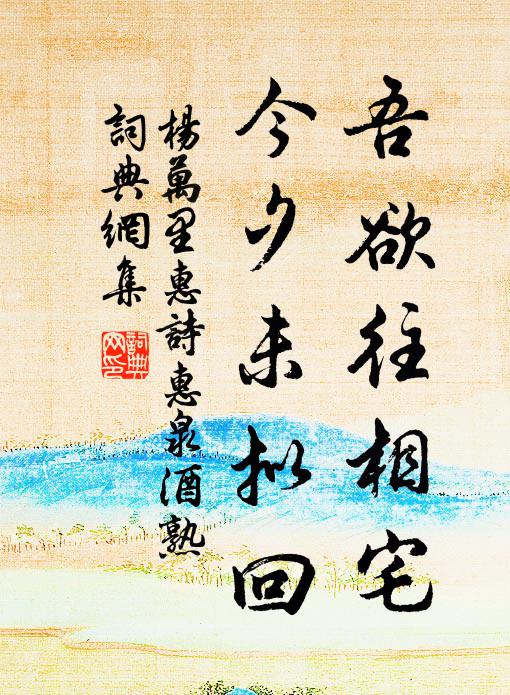 吾欲往相宅
今夕未拟回
楊萬里惠詩惠泉酒熟
詞典網集
詞典网印